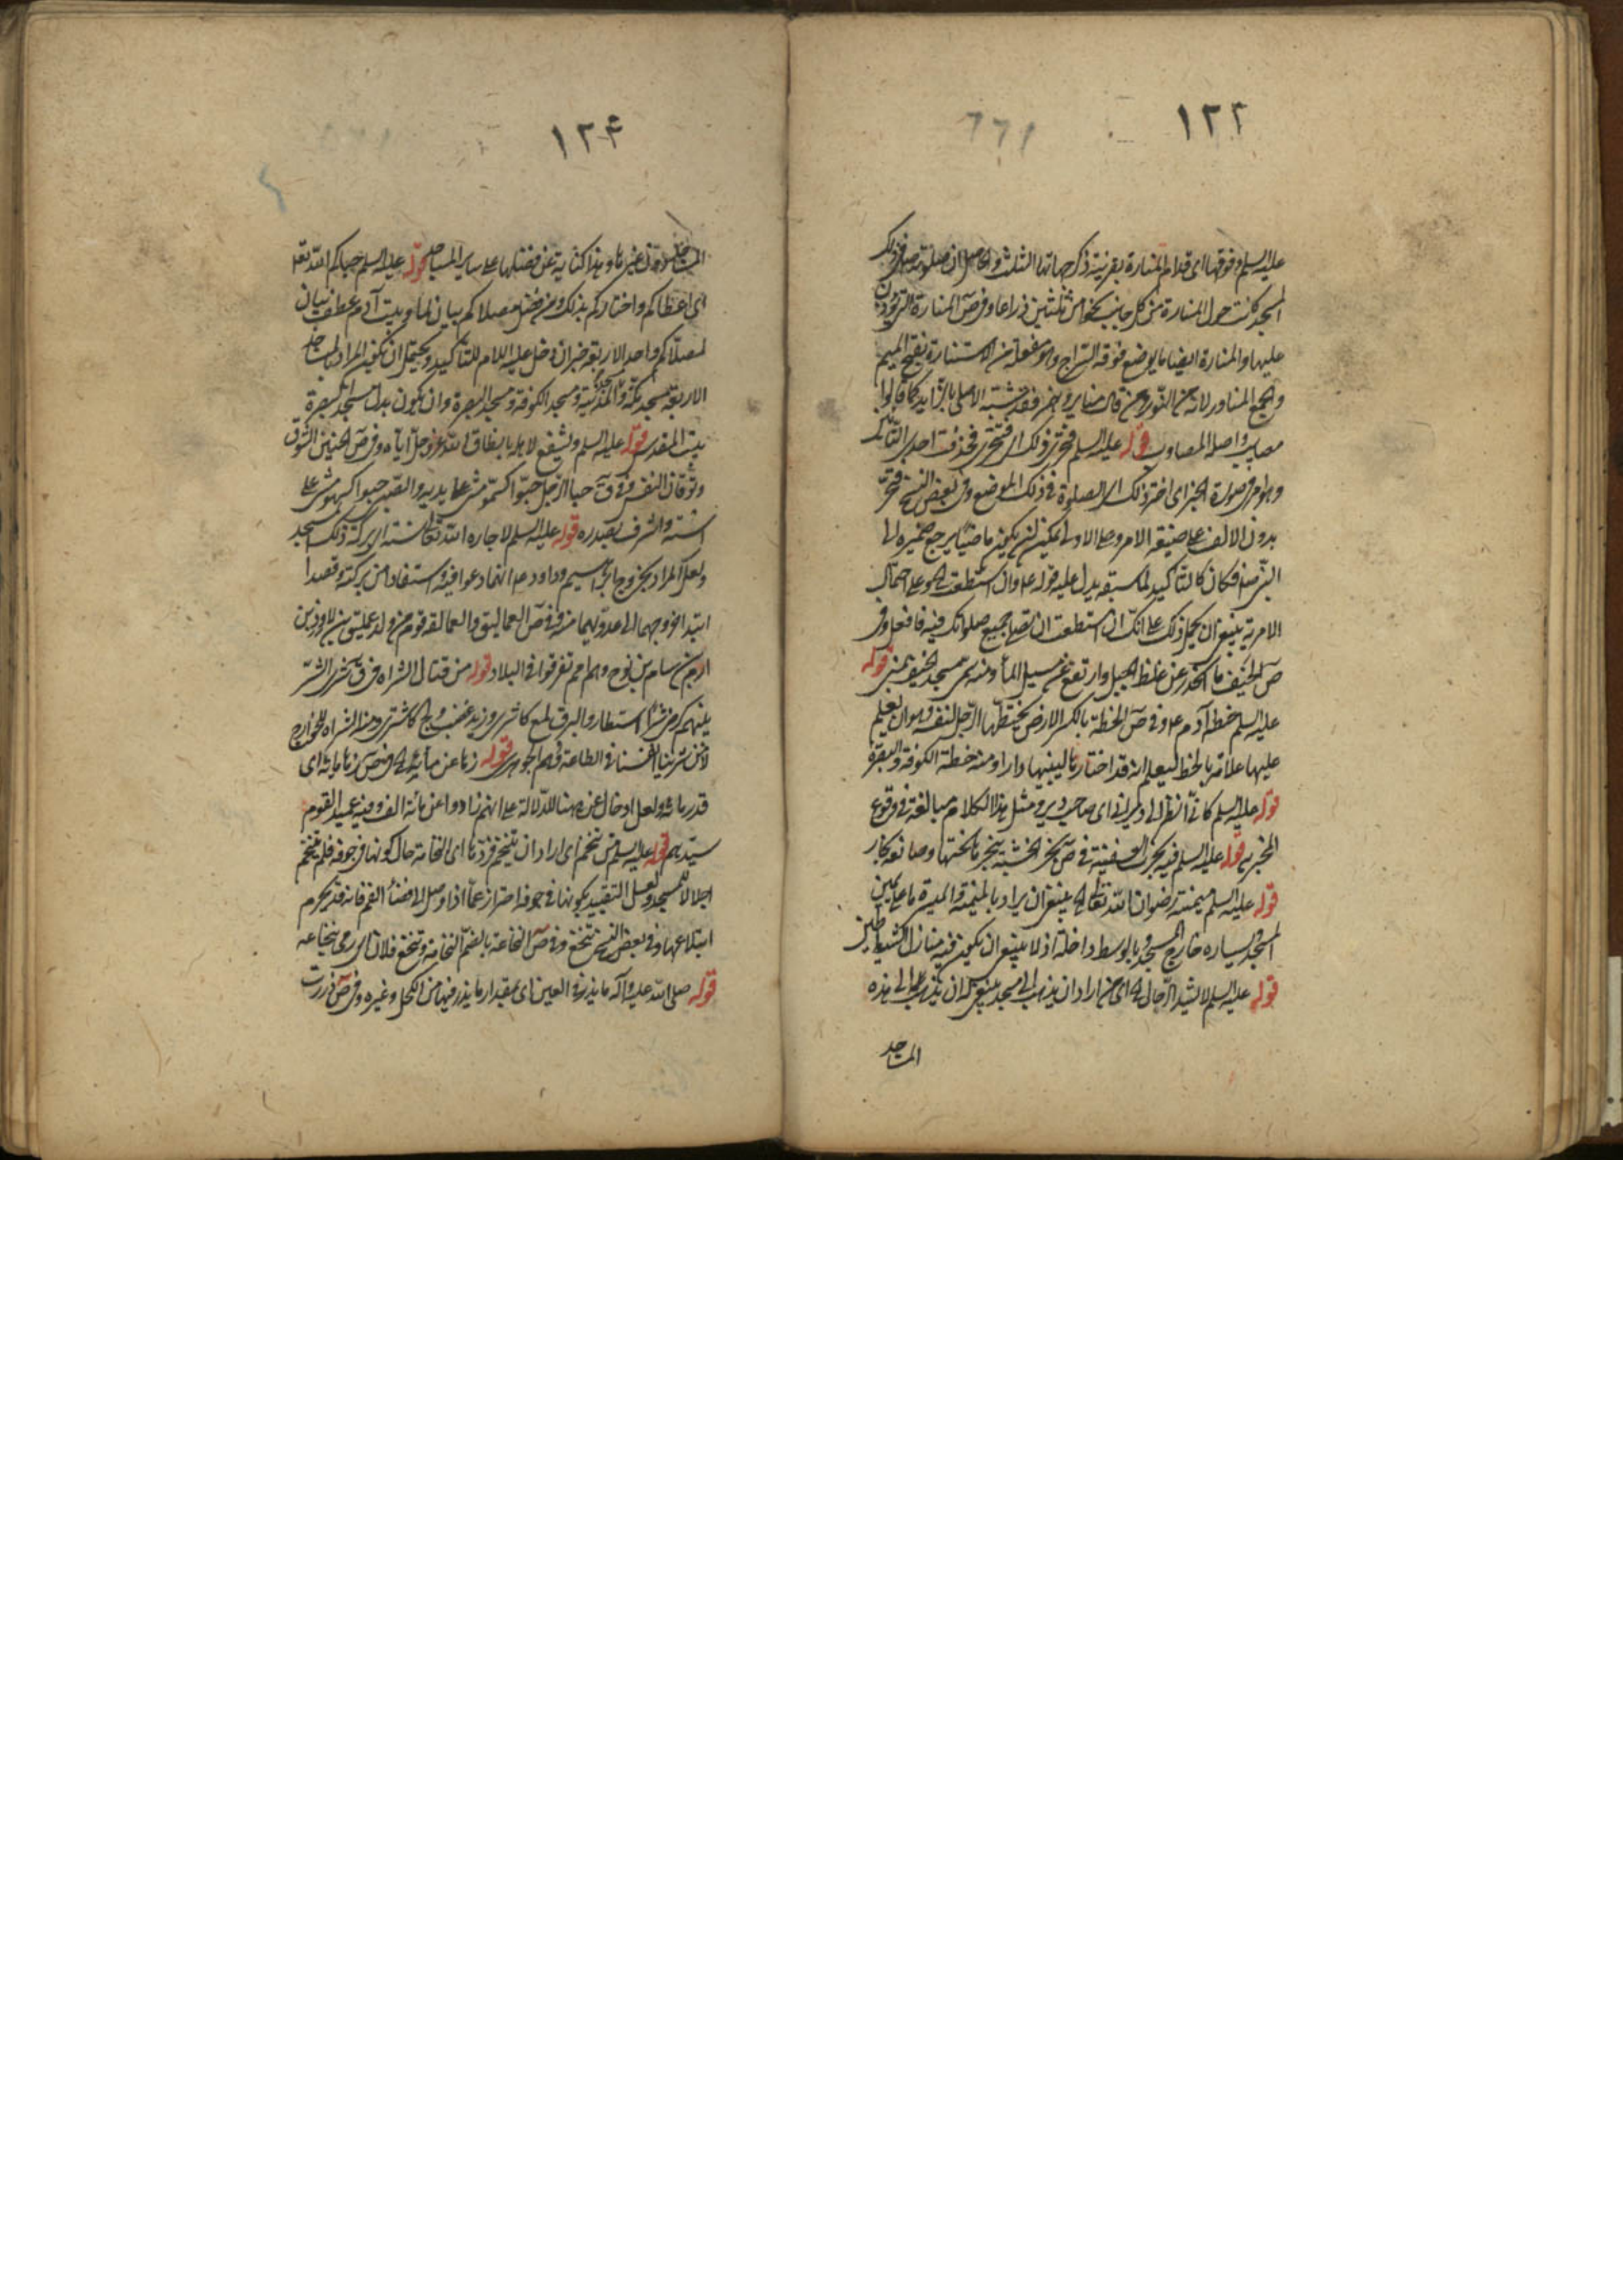 ١٢٣
عليه السلم وفوقها اى قدام المنارة بقرينة ذكر جهاتها الثلث والحاصل ان صلوته صلى فى ذلك
المسجد كانت حول المنارة من كل جانب بنحو من ثلثين ذراعا وفى ص المنارة التى يؤذن
عليها والمنارة ايضا ما يوضع فوقه السراج وهو مفعلة من الاستنارة بفتح الميم
والجمع المناور لانه من النور ومن قال مناير وهمز فقد شبه الاصلى بالزايد كما قالوا
مصايب واصله المصاوب قوله عليه السلم فتحر ذلك اى فتتحر فحذفت احدى التائين
وهو امر فى صورة الخبر اى اختر ذلك الصلوة فى ذلك الموضع وفى بعض النسخ فتحر
بدون الالف على صيغة الامر وعلى الاول يمكن ان يكون ماضيا يرجع ضميره الى
النبى ص فكان كالتأكيد لما سبقه يدل عليه قوله ع وان استطعت الخ وعلى احتمال
الامرية ينبغى ان يحمل ذلك على انك ان استطعت ان تصلى جميع صلواتك فيه فافعل وفى
ص الخيف ما انحدر عن غلظ الجبل وارتفع عن مسيل الماء ومنه سمى مسجد الخيف بمنى قوله
عليه السلم خط آدم ع وفى ص الخطة بالكسر الارض يختطها الرجل لنفسه وهو ان يعلم
عليها علامة بالخط ليعلم انه قد اختارها ليبنيها دارا ومنه خطط الكوفة والبصرة
قوله عليه السلم كانى انظر الى ديرانى اى صاحب دير ومثل هذا الكلام مبالغة فى وقوع
المخبر به قوله عليه السلم فيه نجرت السفينة فى ص نجر الخشبة ينجرها نحتها وصانعه نجار
قوله عليه السلم ميمنته رضوان الله تعالى الخ ينبغى ان يراد بالميمنة والميسرة ما على يمين
المسجد ويساره خارج المسجد وبالوسط داخله اذ لا ينبغى ان يكون فيه منازل الشياطين
قوله عليه السلم لا تشد الرحال الخ اى من اراد ان يذهب الى مسجد ينبغى له ان يذهب الى هذه
المساجد
١٢۴
المساجد لا الى غيرها وهذا كناية عن فضلها على ساير المساجد قوله عليه السلم حباكم الله تعالى
اى اعطاكم واختاركم بذلك ومن فضل مصلاكم بيان لما وبيت آدم عطف بيان
لمصلاكم واحد الاربعة خبر ان دخل عليه اللام للتأكيد ويحتمل ان يكون المراد بالمساجد
الاربعة مسجد مكة والمدينة ومسجد الكوفة ومسجد البصرة وان يكون بدل مسجد البصرة
بيت المقدس قوله عليه السلم ويشفع لاهله بانطاق الله عز وجل اياه وفى ص الحنين الشوق
وتوقان النفس وفى ق حبا الرجل حبوا كسمو مشى على يديه والصبى حبوا كسهو مشى على
استه واشرف بصدره قوله عليه السلم لاجاره الله تعالى سنة الى بركة ذلك المسجد
ولعل المراد بخروج ابراهيم وداود ع انهما دعوا فيه واستفادا من بركته وقصدا
ابتداء خروجهما الى عدويهما منه وفى ص العماليق والعمالقة قوم من ولد عمليق بن لاوذ بن
ارم بن سام بن نوح وهم امم تفرقوا فى البلاد قوله من قتال الشراة فى ق شرى الشر
بينهم كرضى شرى استطار والبرق لمع كاشرى وزيد غضب ولج كاستشرى ومنه الشراة للخوارج
لا من شرينا انفسنا فى الطاعة ووهم الجوهرى قوله زهاء عن مأية الخ فى ص زهاء مائة اى
قدر مائة ولعل ادخال عن هنا للدلالة على انهم زادوا عن مائة الف وفيه عميد القوم
سيدهم قوله عليه السلم من تنخم اى اراد ان يتنخم فردها اى النخامة حال كونها فى جوفه فلم يتنخم
اجلالا للمسجد ولعل التقييد بكونها فى جوفه احتراز عما اذا وصل الى فضاء الفم فانه قد يحرم
ابتلاعها وفى بعض النسخ تنخع وفى ص النخاعة بالضم النخامة وتنخع فلان اى رمى بنخاعته
قوله صلى الله عليه وآله ما يذر فى العين اى مقدار ما يذر فيها من الكحل وغيره وفى ص ذررت